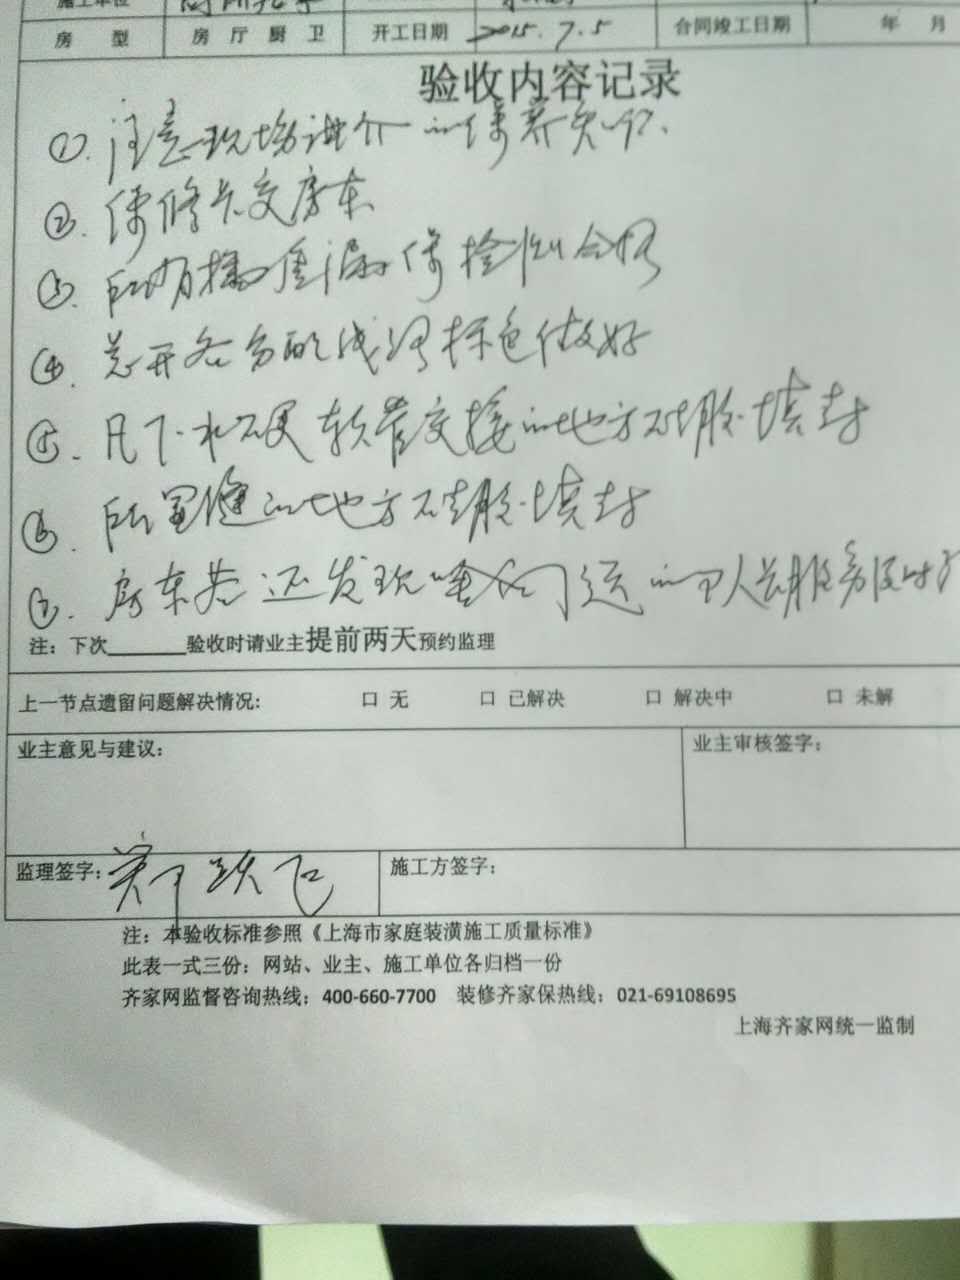 施工单位
房 型 房 厅 厨 卫 开工日期 2015.7.5 合同竣工日期 年 月
验收内容记录
①. 注意现场讲介的保养知识.
②. 保修卡交房东
③. 所有插座漏保检测合格
④. 总开各分配线得标色做好
⑤. 凡下水硬软管交接的地方硅胶填封
⑥. 所留缝的地方硅胶填封
⑦. 房东若还发现
注：下次______验收时请业主提前两天预约监理
上一节点遗留问题解决情况: 口 无 口 已解决 口 解决中 口 未解
业主意见与建议： 业主审核签字：
监理签字： 施工方签字：
注：本验收标准参照《上海市家庭装潢施工质量标准》
此表一式三份：网站、业主、施工单位各归档一份
齐家网监督咨询热线：400-660-7700 装修齐家保热线：021-69108695
上海齐家网统一监制